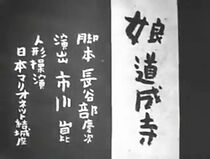 娘道成寺
脚本 長谷部慶次
演出 市川崑
人形操演
日本マリオネット結城座